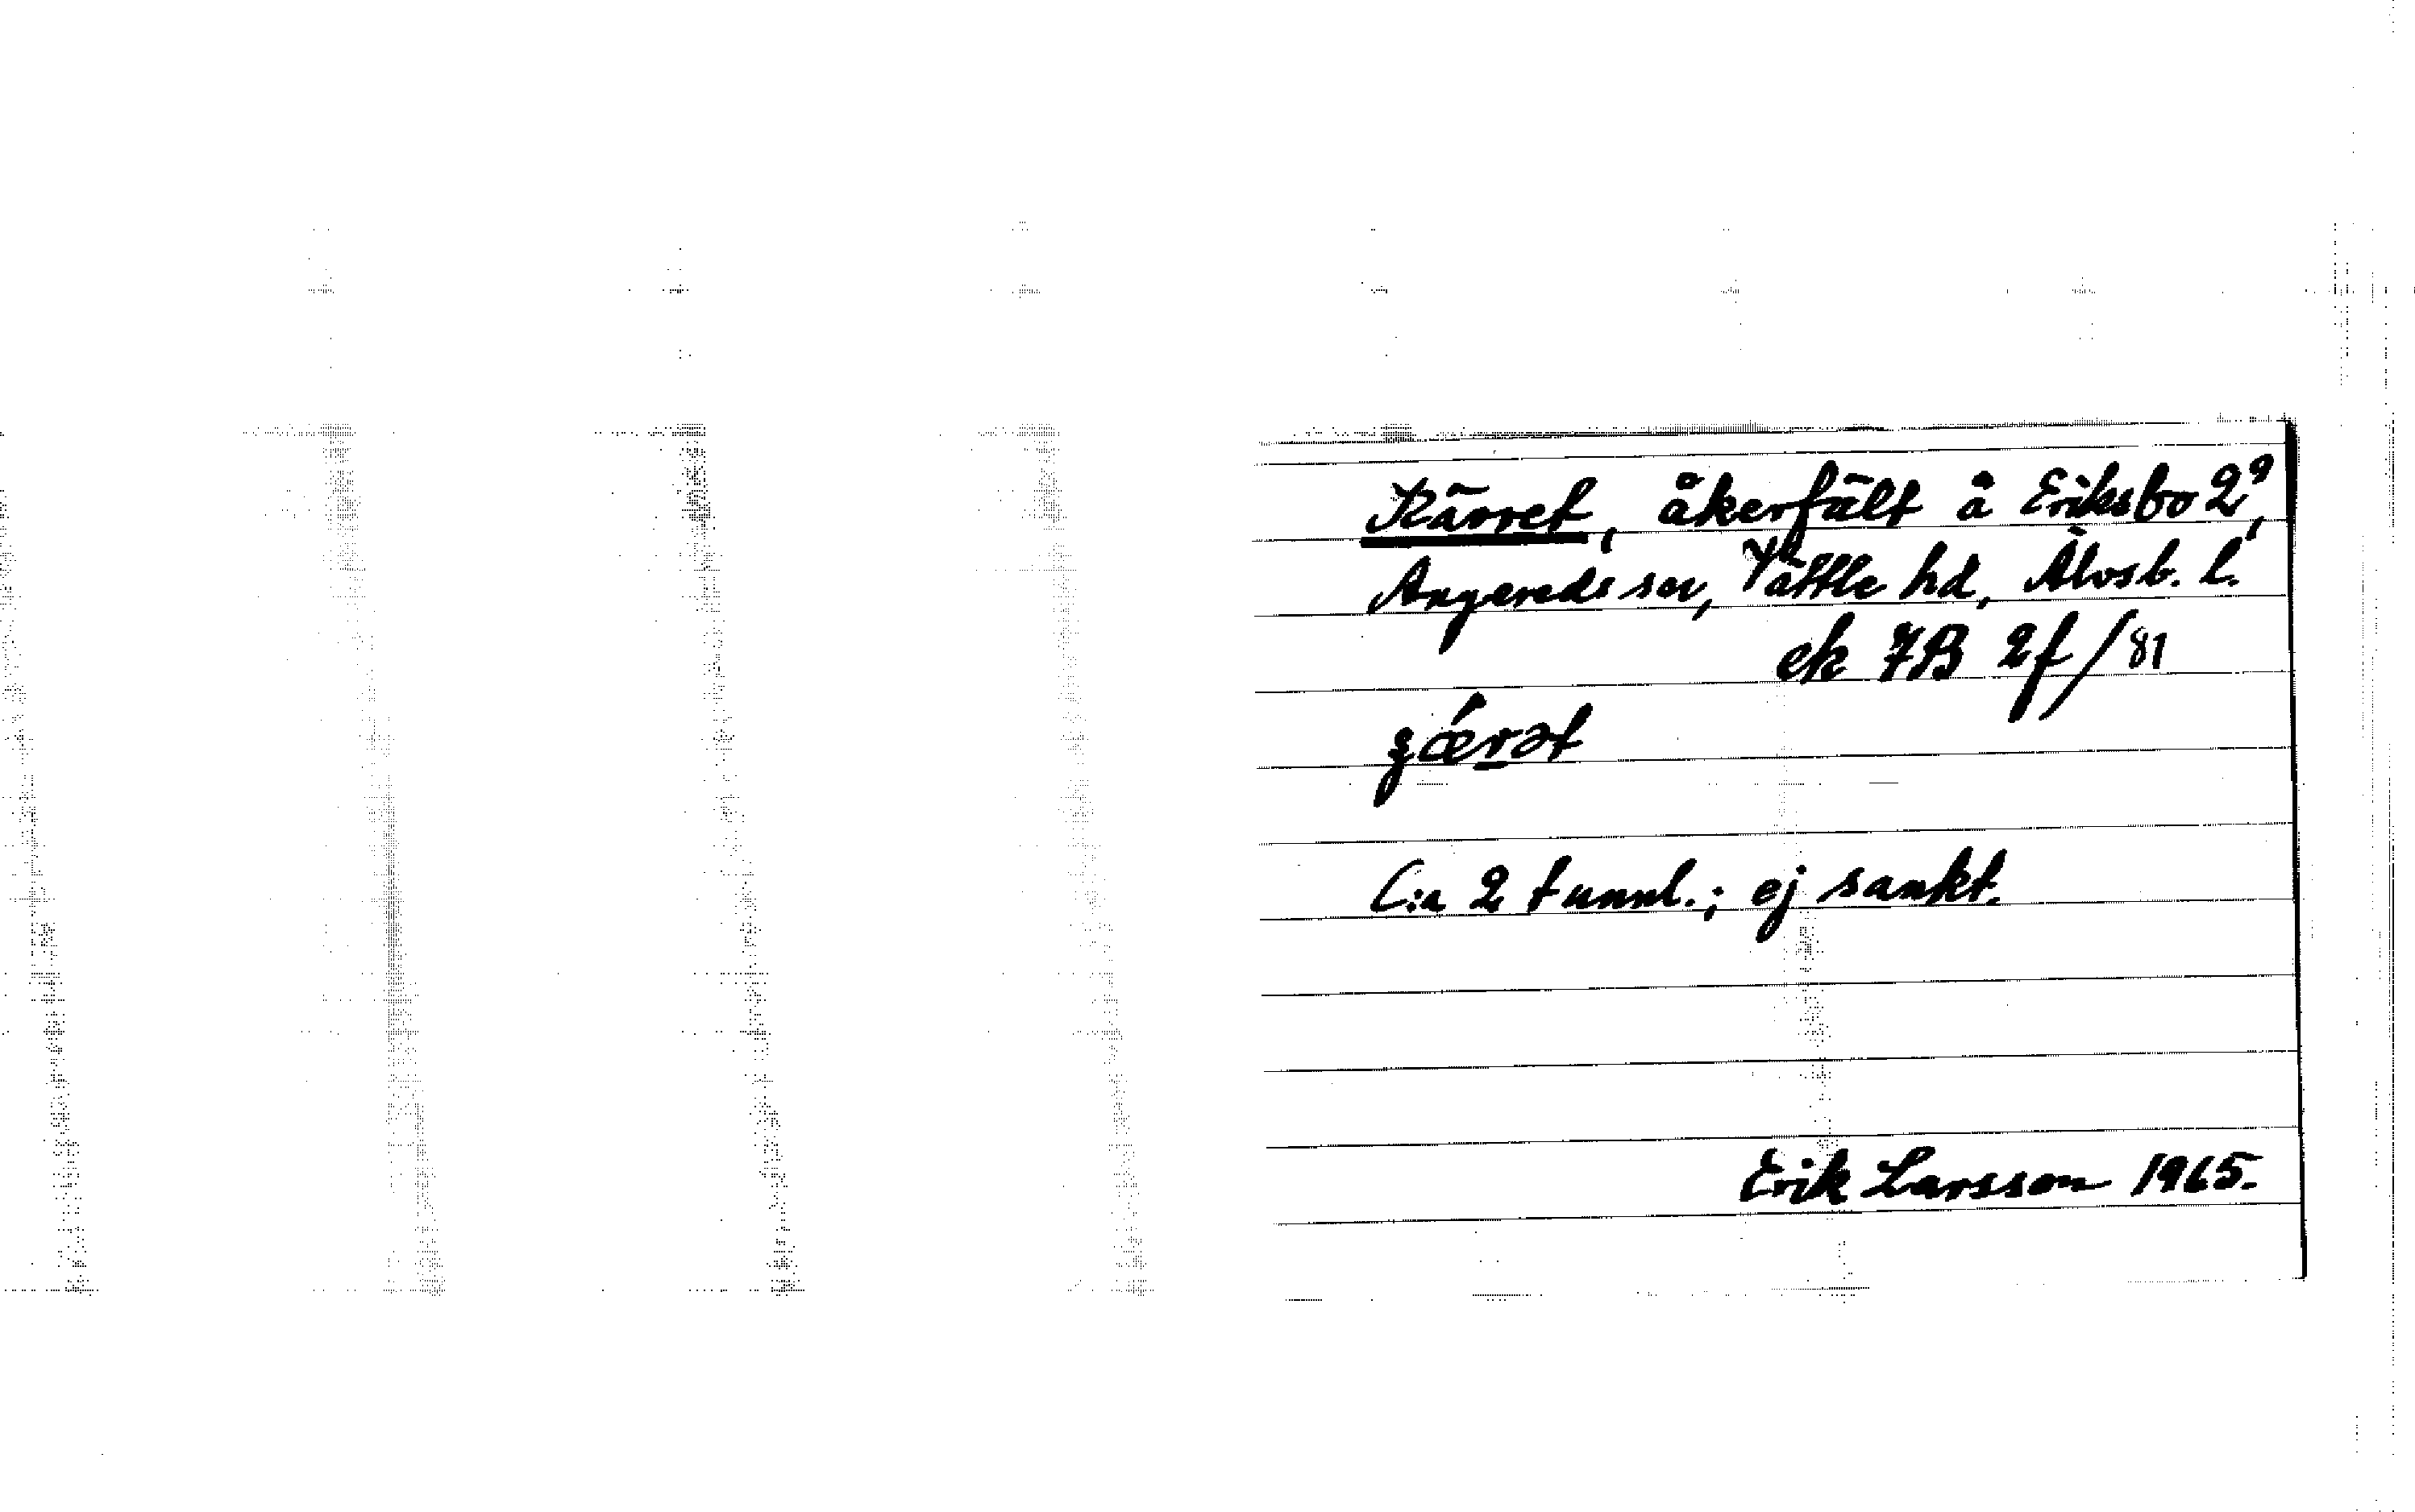 Kärret, åkerfält å Eriksbo 2⁹,
Angereds sn, Vättle hd, Älvsb. l.
ek 7B 2f/81
C:a 2 tunnl.; ej sankt.
Erik Larsson 1965.